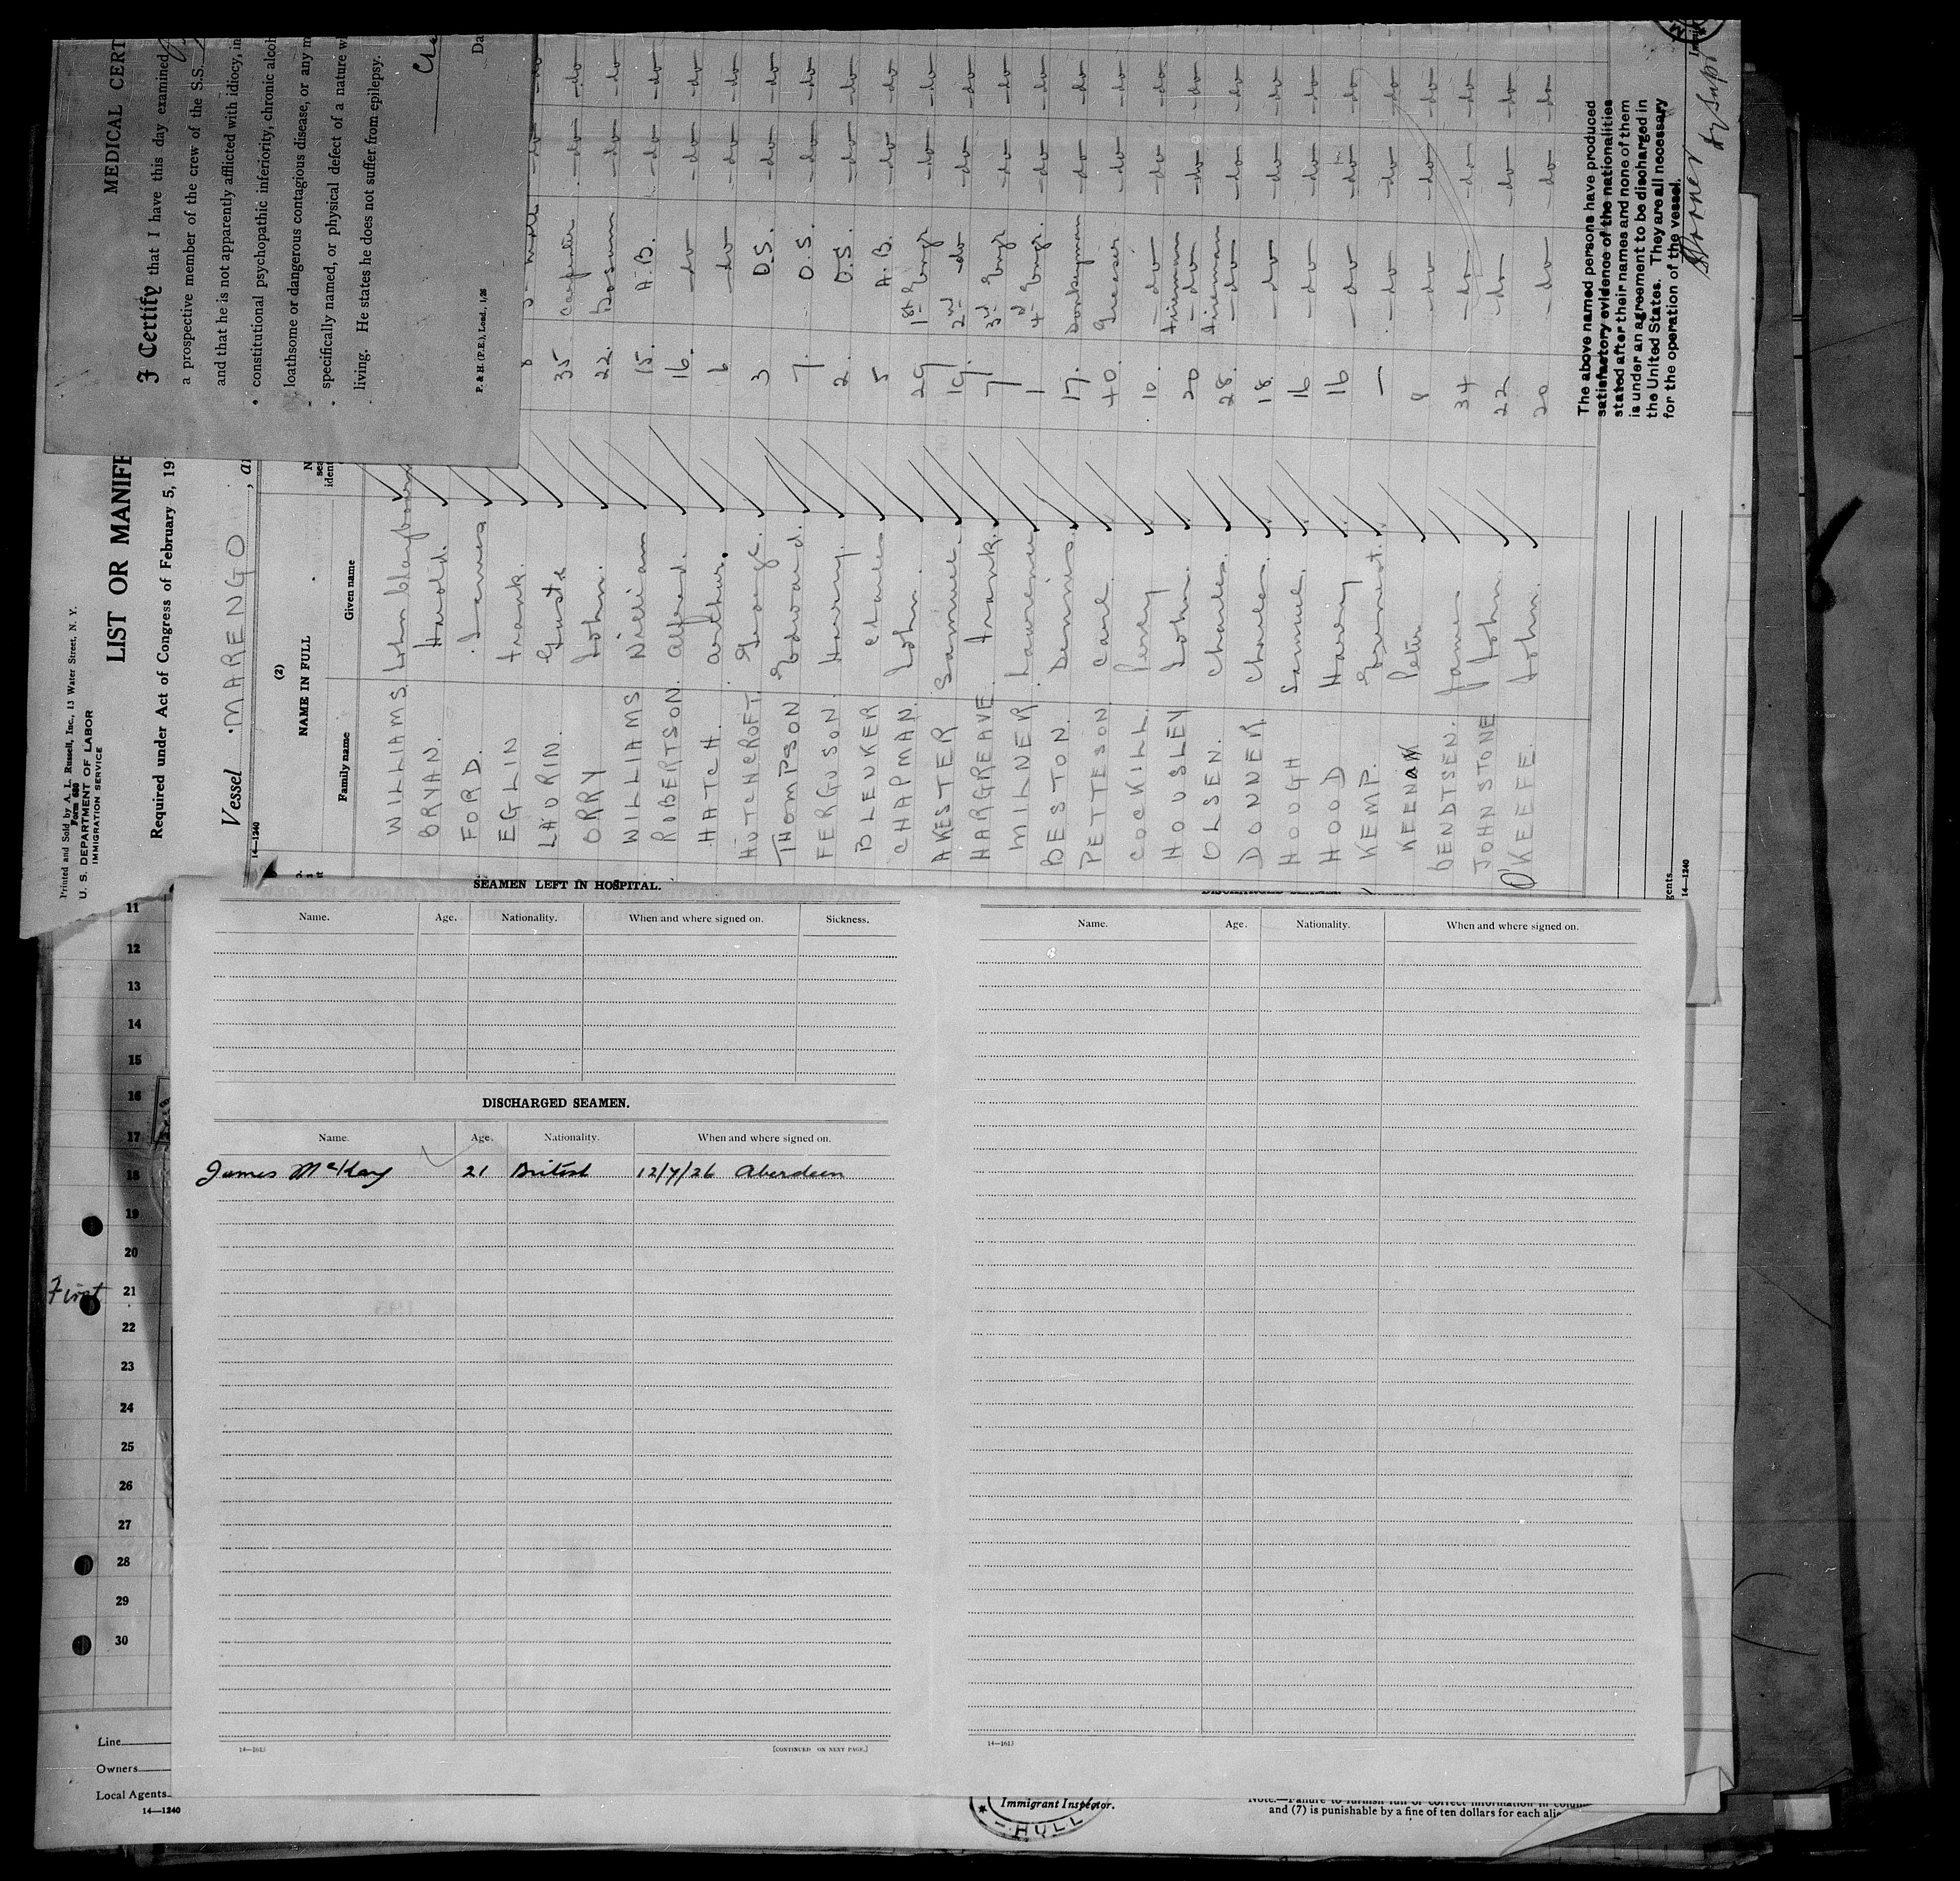 MEDICAL CERT
I Certify that I have this day examined
a prospective member of the crew of the S.S.
and that he is not apparently afflicted with idiocy, in
constitutional psychopathic inferiority, chronic alcoh
loathsome or dangerous contagious disease, or any m
specifically named, or physical defect of a nature w
living. He states he does not suffer from epilepsy.
Da
P. & H. (P.E.), Lond., 1/26
Printed and Sold by A. L. Russell, Inc., 13 Water Street, N. Y.
Form 680
U. S. DEPARTMENT OF LABOR
IMMIGRATION SERVICE
LIST OR MANIFE
Required under Act of Congress of February 5, 191
Vessel MARENGO, ar
14—1240
(2)
NAME IN FULL
Family name Given name
WILLIAMS. John
BRYAN. Harold. 8
FORD. James 35 Carpenter -do- -do-
EGLIN Frank. 22. bosum -do- -do-
LAURIN. 15. A.B. -do- -do-
ORRY John. 16. -do- -do- -do-
WILLIAMS William 6 -do- -do- -do-
ROBERTSON. Alfred. 3 O.S. -do- -do-
HATCH. Arthur. 7. O.S. -do- -do-
HUTCHCROFT. George. 2. O.S. -do- -do-
THOMPSON Edward. 5 A.B. -do- -do-
FERGUSON. Harry. 29 1st Engr -do- -do-
BLENKER Charles 19. 2nd -do- -do- -do-
CHAPMAN. John. 7 3rd Engr -do- -do-
AKESTER Samuel. 1 4 Engr. -do- -do-
HARGREAVE Frank. 17. Donkeyman -do- -do-
MILNER. Laurence 40. Greaser -do- -do-
BESTON. Dennis. 10. -do- -do- -do-
PETTERSON. Carl. 20 Fireman -do- -do-
COCKILL. Percy 28. Fireman -do- -do-
HOUSLEY John. 18. -do- -do- -do-
OLSEN. Charles. 16 -do- -do- -do-
DONNER Charles. 16 -do- -do- -do-
HOUGH Samuel. — -do- -do- -do-
HOOD Harry 8 -do- -do- -do-
KEMP. Ernest. 34 -do- -do- -do-
KEENAN Peter 22 -do- -do- -do-
BENDTSEN. James 20 -do- -do- -do-
JOHNSTONE John.
O'KEEFE. John.
The above named persons have produced
satisfactory evidence of the nationalities
stated after their names and none of them
is under an agreement to be discharged in
the United States. They are all necessary
for the operation of the vessel.
gents
14—1240
SEAMEN LEFT IN HOSPITAL.
Name. Age. Nationality. When and where signed on. Sickness.
DISCHARGED SEAMEN.
Name. Age. Nationality. When and where signed on.
James McKay 21 British 12/7/26 Aberdeen
14—1613 [CONTINUED ON NEXT PAGE.]
Name. Age. Nationality. When and where signed on.
14—1613
11
12
13
14
15
16
17
18
19
20
First 21
22
23
24
25
26
27
28
29
30
Line
Owners
Local Agents
14—1240
Immigrant Inspector.
HULL
Note.—Failure to furnish full or correct information in colum
and (7) is punishable by a fine of ten dollars for each alie